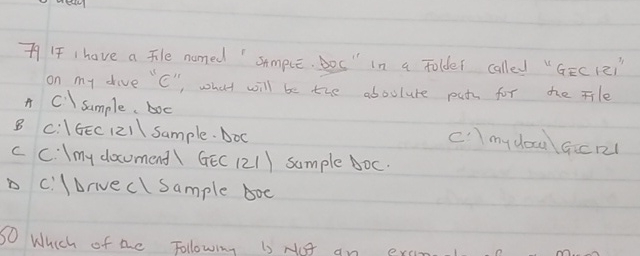 79 If i have a file named "SAMPLE.DOC" in a Folder called "GEC 121"
on my drive "C", what will be the absolute path for the File
A C:\ sample. Doc
B C:\GEC 121\ sample.Doc
C:\mydocu\GEC121
C C:\my document\ GEC 121\ sample Doc.
D C:\Drive c\ sample Doc
50 Which of the Following is Not an